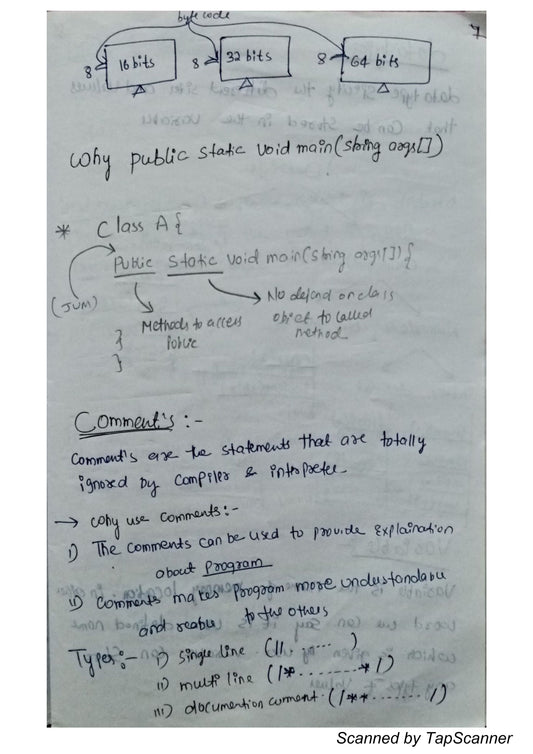 byte code
7
8 16 bits 8 32 bits 8 64 bits
Why public static void main(string args[])
* Class A{
Public static void main(string args[]){
(JVM)
No depend on class
object to called
method
Methods to access
Public
}
}
Comment's :-
Comment's are the statements that are totally
ignored by compiler & interpreter
→ Why use comments:-
i) The comments can be used to provide Explaination
about Program
ii) Comments makes Program more understandable
and to the others
Types:- i) single line (//.... )
ii) multi line (/*........*/)
iii) documention comment (/**....... /)
Scanned by TapScanner